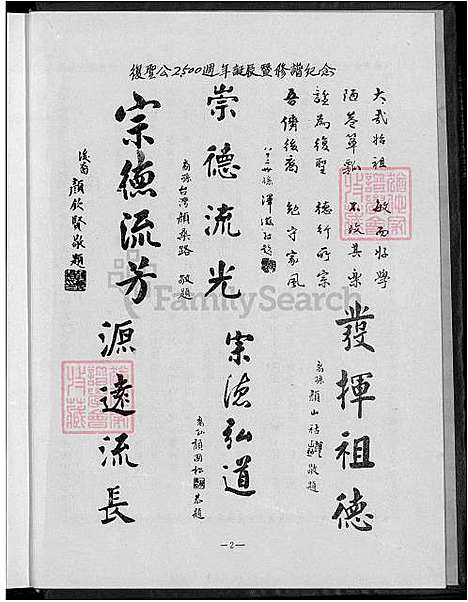 復聖公2500週年誕辰暨修譜紀念
大哉始祖 敏而好學
陋巷簞瓢 不改其樂
諡為復聖 德行所宗
吾儕後裔 紀守家風
發揮祖德
裔孫 顏山
敬題
崇德流光
裔孫台灣顏桑路 敬題
宗德弘道
宗德流芳
後裔 顏欽賢敬題
源遠流長
FamilySearch
—2—